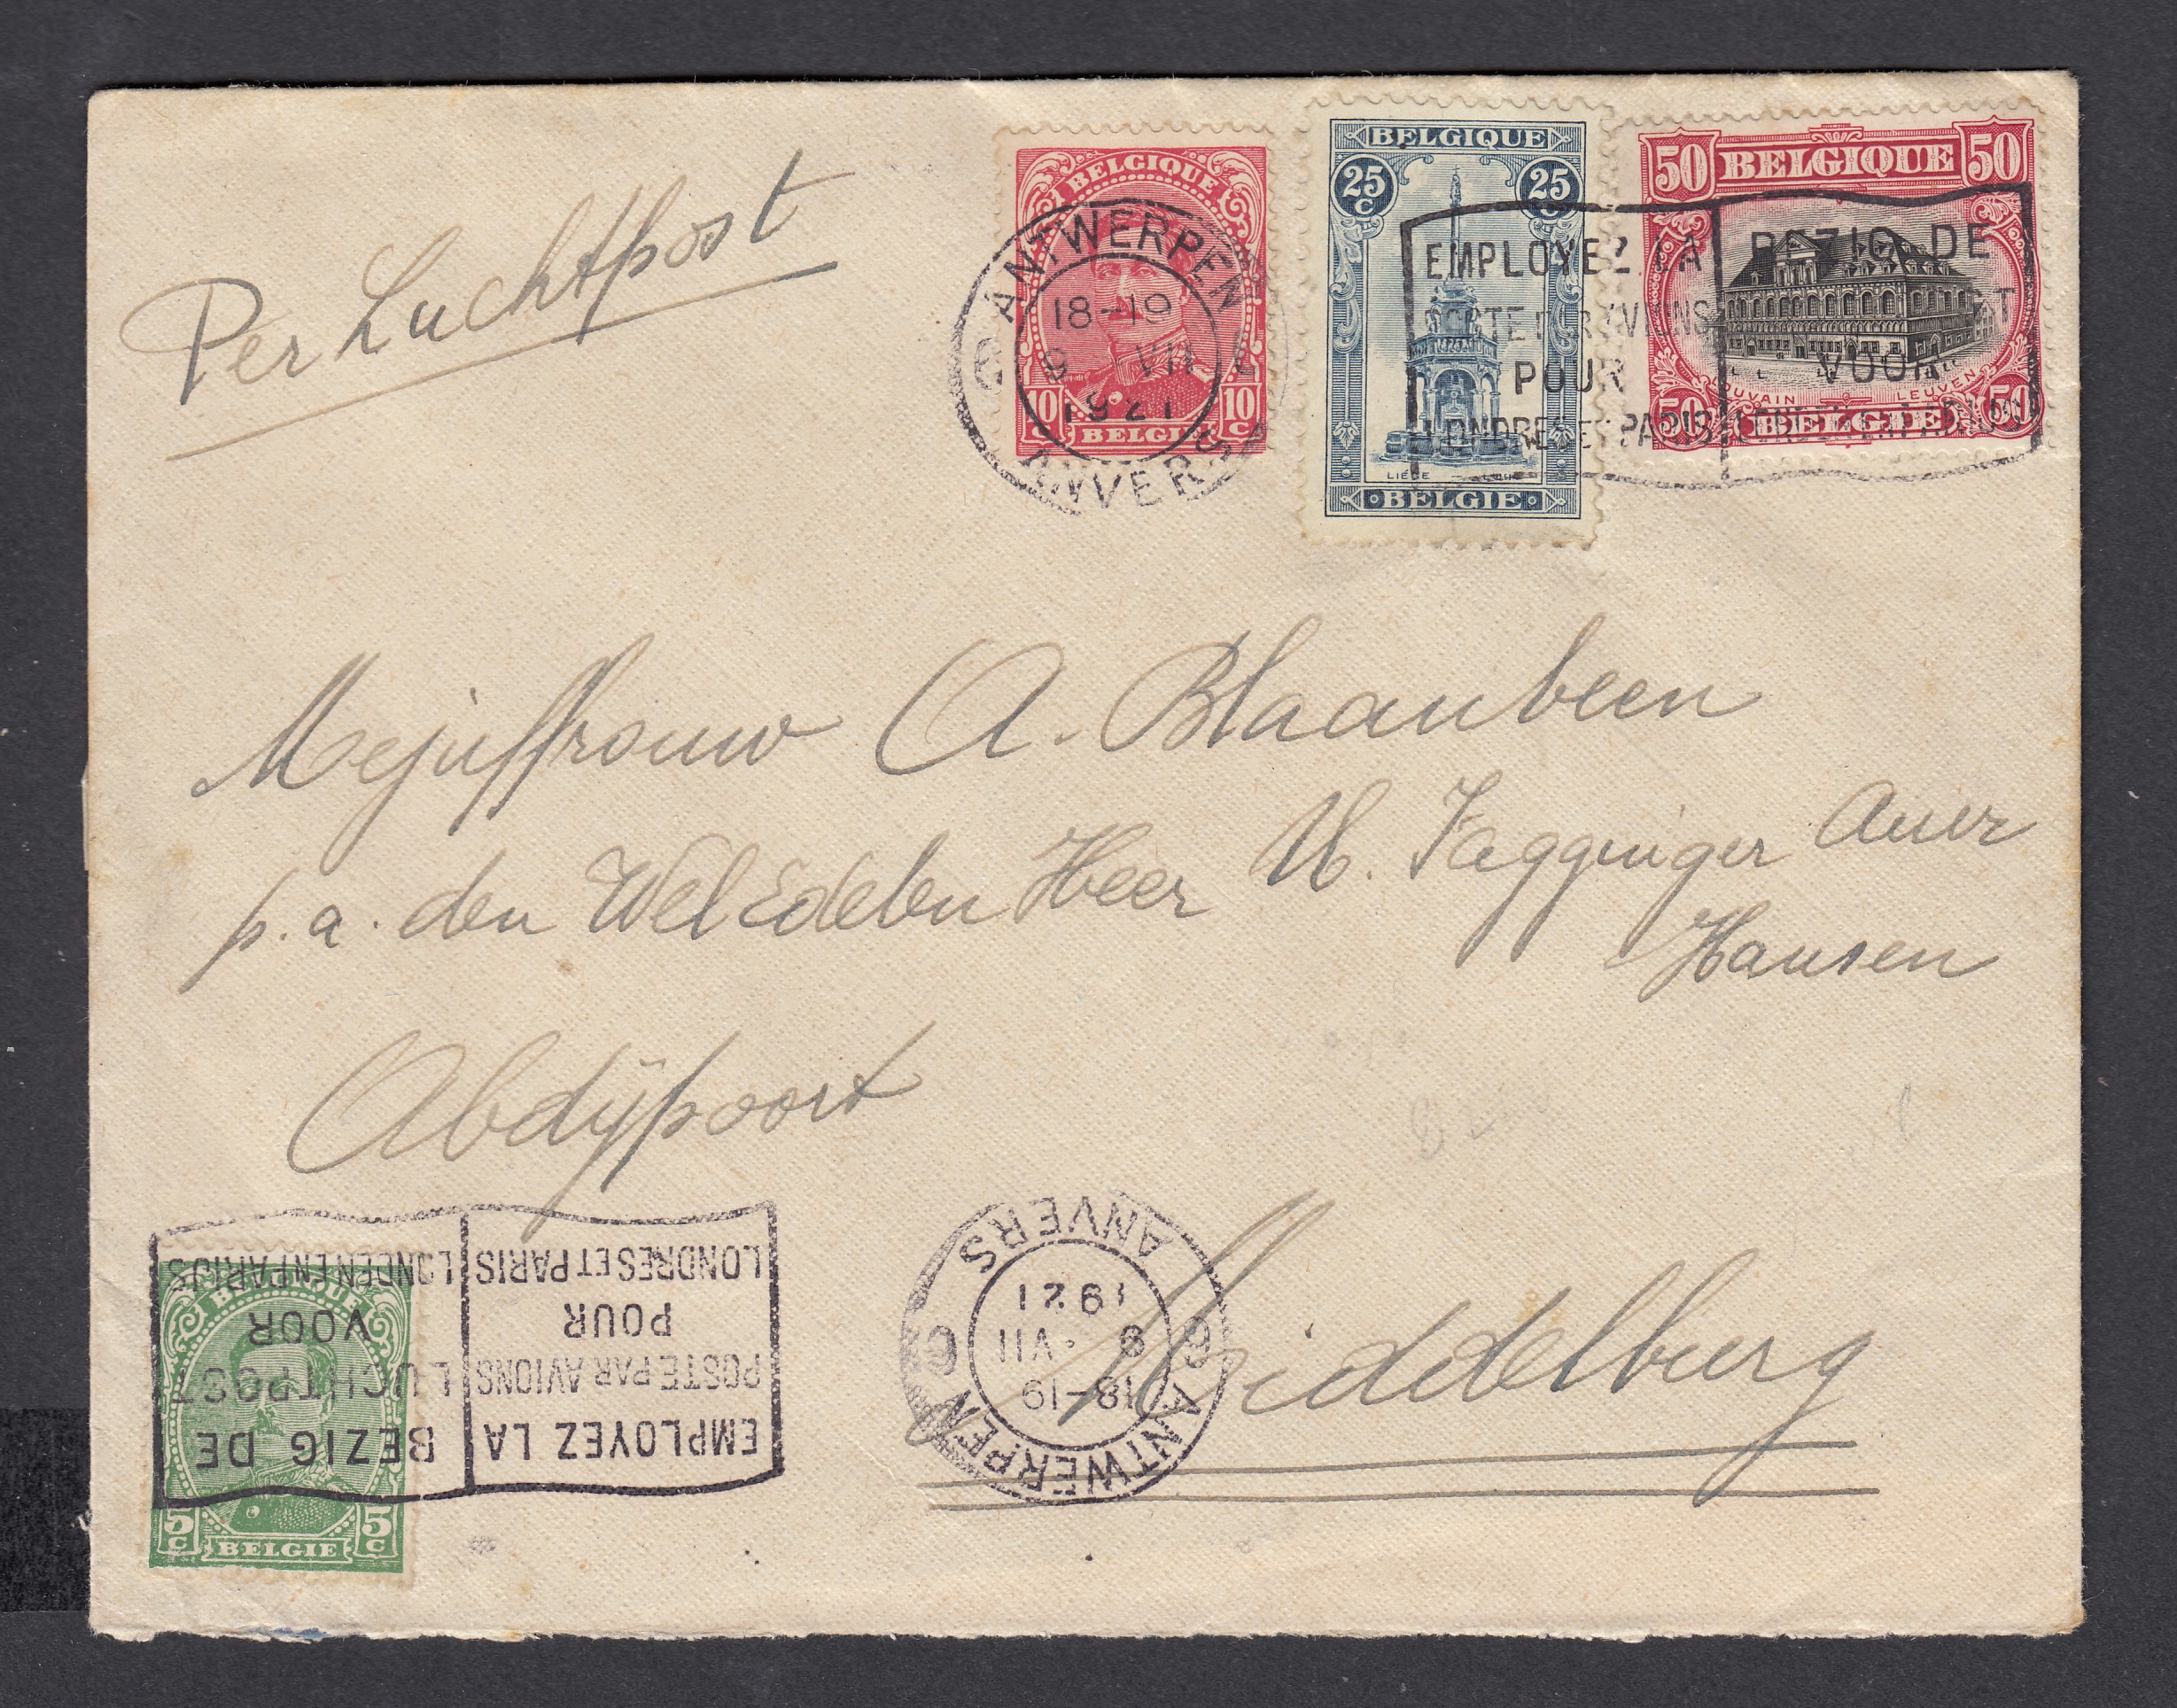 Per Luchtpost
BELGIQUE
10 c 10 c
BELGIË
ANTWERPEN
18-19
9 VII
1921
6 6
ANVERS
BELGIQUE
25 c 25 c
LIÉGE
BELGIE
50 BELGIQUE 50
LOUVAIN LEUVEN
50 BELGIE 50
EMPLOYEZ LA
POSTE PAR AVIONS
POUR
LONDRES ET PARIS
BEZIG DE
VOOR
Mejuffrouw A. Blaaubeen
p. a. den WelEdelen Heer M. Fagginger Auer
Hansen
Abdijpoort
Middelburg
EMPLOYEZ LA
POSTE PAR AVIONS
POUR
LONDRES ET PARIS
BEZIG DE
LUCHTPOST
VOOR
LONDEN EN PARIJS
ANTWERPEN
18-19
9 VII
1921
6 6
ANVERS
5 c 5 c
BELGIE